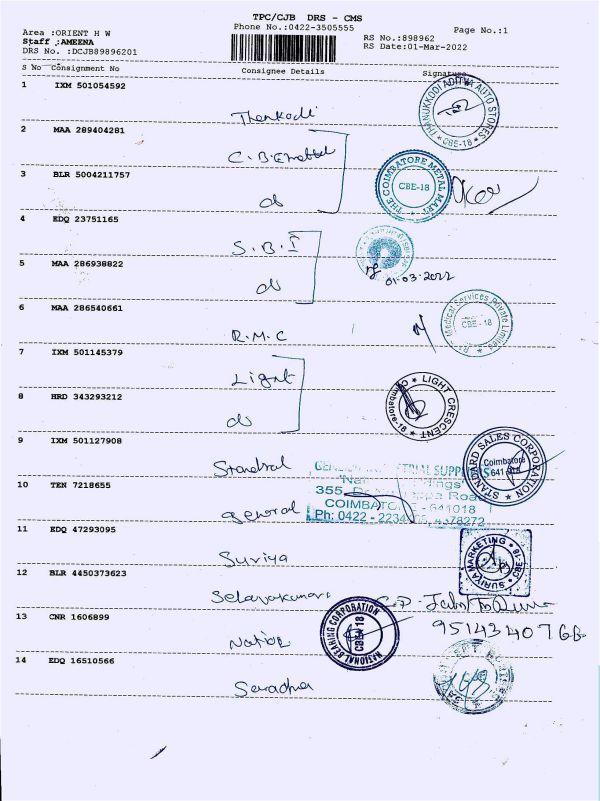 TPC/CJB DRS - CMS
Phone No.:0422-3505555
Page No.:1
Area :ORIENT H W
Staff :AMEENA
DRS No. :DCJB89896201
RS No.:898962
RS Date:01-Mar-2022
S No Consignment No Consignee Details Signature
1 IXM 501054592
THANUKKODI ADITYA AUTO STORES
CBE-18
2 MAA 289404281
3 BLR 5004211757
do
THE COIMBATORE METAL MART
CBE-18
4 EDQ 23751165
S.B.I
5 MAA 286938822
do
01-03-2022
6 MAA 286540661
R.M.C
Medical Services Private Limited
CBE - 18
7 IXM 501145379
Light
8 HRD 343293212
do
LIGHT CRESCENT
Coimbatore-18
9 IXM 501127908
STANDARD SALES CORPORATION
Coimbatore
641
10 TEN 7218655
General
355,
Road
COIMBATORE - 641018
Ph: 0422 - 2234 4378272
11 EDQ 47293095
Suriya
SURIYA MARKETING
CBE-18
12 BLR 4450373623
13 CNR 1606899
NATIONAL BEARING CORPORATION
CBE 18
14 EDQ 16510566